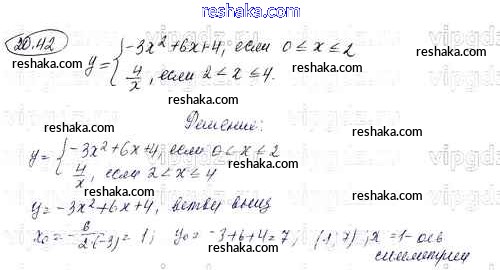 www.reshaka.com
20.42
y = { -3x²+6x+4, если 0≤x≤2
4/x, если 2<x≤4.
reshaka.com
reshaka.com
reshaka.com
reshaka.com
Решение:
y = { -3x²+6x+4, если 0≤x≤2
4/x, если 2<x≤4
reshaka.com
reshaka.com
y = -3x²+6x+4, ветви вниз
x₀ = -6/2·(-3) = 1; y₀ = -3+6+4=7; (1;7); x=1- ось
симметрии
reshaka.com
reshaka.com
vipgdz